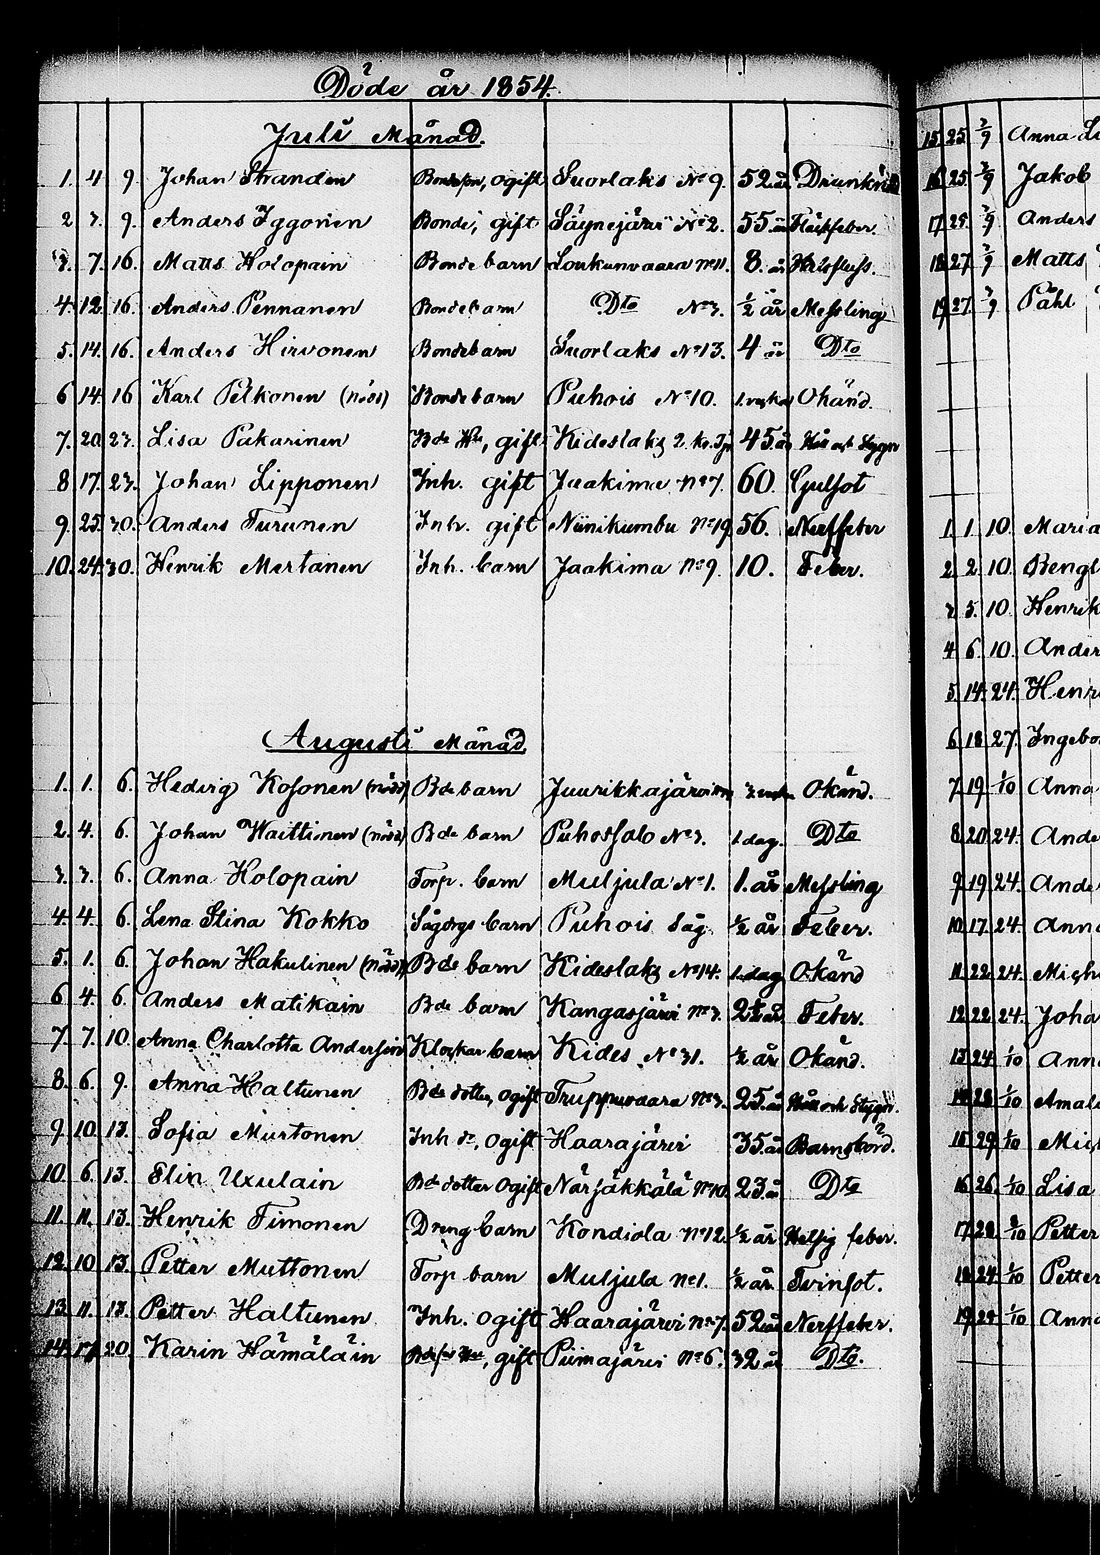 Döde år 1854.
Juli Månad.
1. 4 9. Johan Stranden Bondeson, ogift Suorlaks No 9. 52 år Drunknad
2 7. 9. Anders Iggonen Bonde, gift Säynejärvi No 2. 55. år Fläckfeber.
3. 7. 16. Matts Holopain Bonde barn Loukunvaara No 11. 8. år Halsfluss.
4. 12. 16. Anders Pennanen Bondebarn Dto No 3. ½ år Messling
5. 14. 16. Anders Hirvonen Bondebarn Suorlaks No 13. 4 år Dto
6 14. 16 Karl Pelkonen (nöds) Bondebarn Puhois No 10. 1. vecka Okänd.
7. 20. 23. Lisa Pakarinen Bde, gift Kideslaks 2. 45. år Håll och Stygn
8 17. 23. Johan Lipponen Inh. gift Jaakima No 7. 60. Gulsot
9. 25. 30. Anders Turunen Inh. gift Niinikumbu No 19 56. Nerffeber
10. 24. 30. Henrik Mertanen Inh. barn Jaakima No 9. 10. Feber.
Augusti Månad.
1. 1. 6. Hedvig Kosonen (nöds) Bde barn Juurikkajärvi Okänd.
2. 4. 6. Johan Waittinen (nöds) Bde barn Puhossalo No 3. 1 dag. Dto
3. 3. 6. Anna Holopain Torp. barn Muljula No 1. 1. år Messling
4. 4. 6. Lena Stina Kokko Sågdrgs barn Puhois Såg. ½ år Feber.
5. 1. 6. Johan Hakulinen (nöds) Bde barn Kideslaks No 14. 1. dag Okänd
6 4. 6. Anders Matikain Bde barn Kangasjärvi No 3. 2½ år Feber.
7. 7. 10. Anna Charlotta Andersin Klockar barn Kides No 31. ½ år Okänd.
8. 6. 9. Anna Haltunen Bde dotter, ogift Truppuvaara No 3. 25. år Håll och Stygn.
9. 10. 13. Sofia Murtonen Inh dr, ogift Haarajärvi 35. år Barnsbörd.
10. 6. 13. Elin Uxulain Bde dotter ogift Närjäkkälä No 10. 23. år Dto
11. 11. 13. Henrik Timonen Dreng barn Kondiola No 12. ½ år Hetsig feber.
12. 10 13. Petter Muttonen Torp barn Muljula No 1. ½ år Tvinsot.
13. 11. 13. Petter Haltunen Inh. ogift Haarajärvi No 7. 52 år Nerffeber.
14. 17. 20. Karin Hämäläin gift Piimajärvi No 6. 32 år Dto.
15 25. 2/9 Anna
16 25. 2/9 Jakob
17 25. 2/9 Anders
18 27. 2/9 Matts
19 27. 2/9 Påhl
1. 1. 10. Maria
2. 2. 10. Bengt
3 5. 10. Henrik
4 6. 10. Ander
5 14. 24. Henr
6 18 27. Ingebo
7. 19. 1/10 Anna
8. 20. 24. Ande
9. 19. 24. Ande
10. 17. 24. Anna
11. 22. 24. Mich
12. 22 24. Joha
13 24. 1/10 Anna
14 28 1/10 Amali
15 29. 1/10 Mich
16 26. 1/10 Lisa
17 28. 1/10 Petter
18 24. 1/10 Petter
19 29. 1/10 Anna